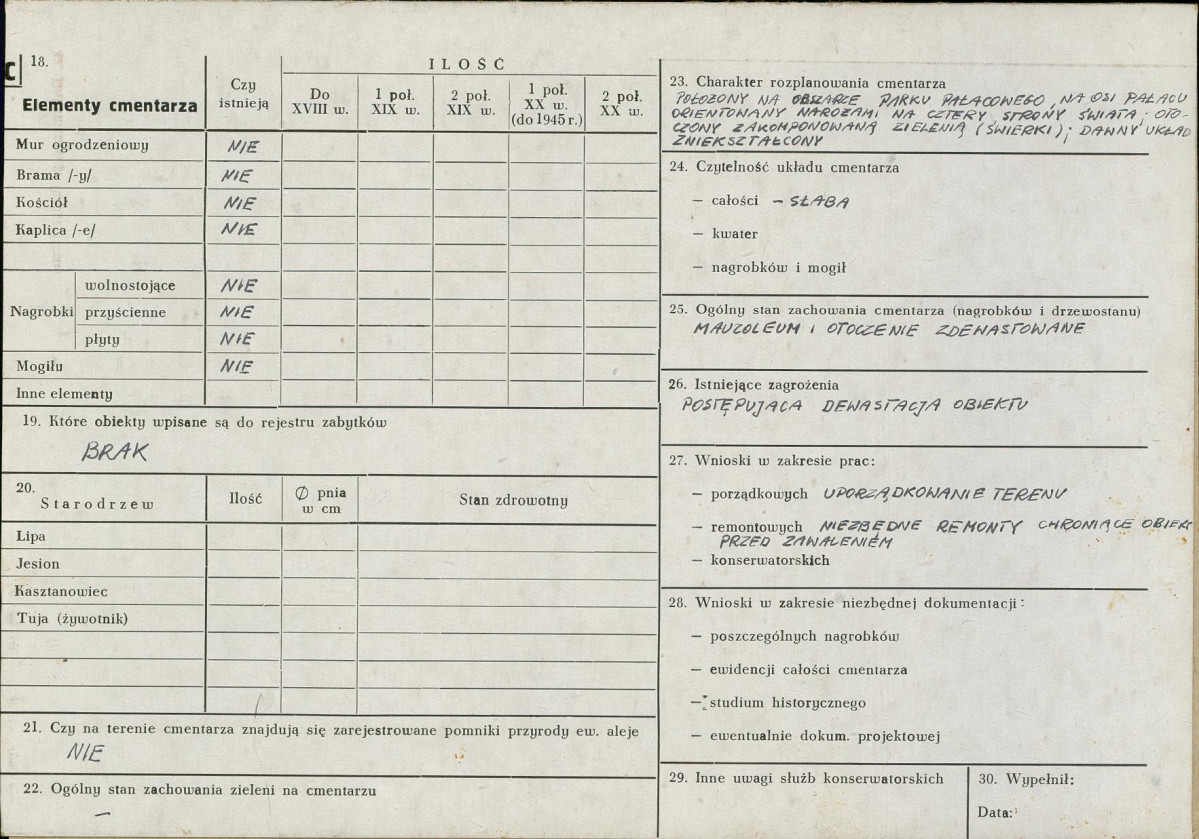 C
18.
Elementy cmentarza
Czy istnieją
ILOŚĆ
Do XVIII w.
1 poł. XIX w.
2 poł. XIX w.
1 poł. XX w. (do 1945 r.)
2 poł. XX w.
Mur ogrodzeniowy NIE
Brama /-y/ NIE
Kościół NIE
Kaplica /-e/ NIE
Nagrobki
wolnostojące NIE
przyścienne NIE
płyty NIE
Mogiły NIE
Inne elementy
19. Które obiekty wpisane są do rejestru zabytków
BRAK
20.
Starodrzew
Ilość
∅ pnia w cm
Stan zdrowotny
Lipa
Jesion
Kasztanowiec
Tuja (żywotnik)
21. Czy na terenie cmentarza znajdują się zarejestrowane pomniki przyrody ew. aleje
NIE
22. Ogólny stan zachowania zieleni na cmentarzu
—
23. Charakter rozplanowania cmentarza
POŁOŻONY NA OBSZARZE PARKU PAŁACOWEGO, NA OSI PAŁACU
ORIENTOWANY NAROŻAMI NA CZTERY STRONY ŚWIATA; OTO-
CZONY ZAKOMPONOWANĄ ZIELENIĄ (ŚWIERKI); DAWNY UKŁAD
ZNIEKSZTAŁCONY
24. Czytelność układu cmentarza
— całości – SŁABA
— kwater
— nagrobków i mogił
25. Ogólny stan zachowania cmentarza (nagrobków i drzewostanu)
MAUZOLEUM I OTOCZENIE ZDEWASTOWANE
26. Istniejące zagrożenia
POSTĘPUJĄCA DEWASTACJA OBIEKTU
27. Wnioski w zakresie prac:
— porządkowych UPORZĄDKOWANIE TERENU
— remontowych NIEZBĘDNE REMONTY CHRONIĄCE OBIEKT
PRZED ZAWALENIEM
— konserwatorskich
28. Wnioski w zakresie niezbędnej dokumentacji:
— poszczególnych nagrobków
— ewidencji całości cmentarza
— studium historycznego
— ewentualnie dokum. projektowej
29. Inne uwagi służb konserwatorskich
30. Wypełnił:
Data: